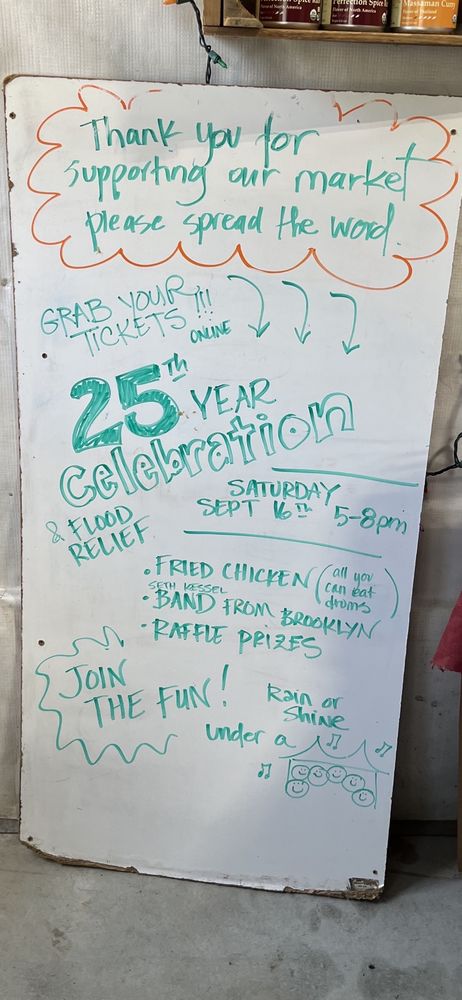 Perfection Spice
Massaman Curry
Thank you for
supporting our market
please spread the word.
GRAB YOUR !!!
TICKETS ONLINE
25TH YEAR
Celebration
& FLOOD
RELIEF
SATURDAY
SEPT 16TH 5-8pm
• FRIED CHICKEN (all you can eat drums)
SETH KESSEL
• BAND FROM BROOKLYN
• RAFFLE PRIZES
JOIN
THE FUN!
Rain or
Shine
under a